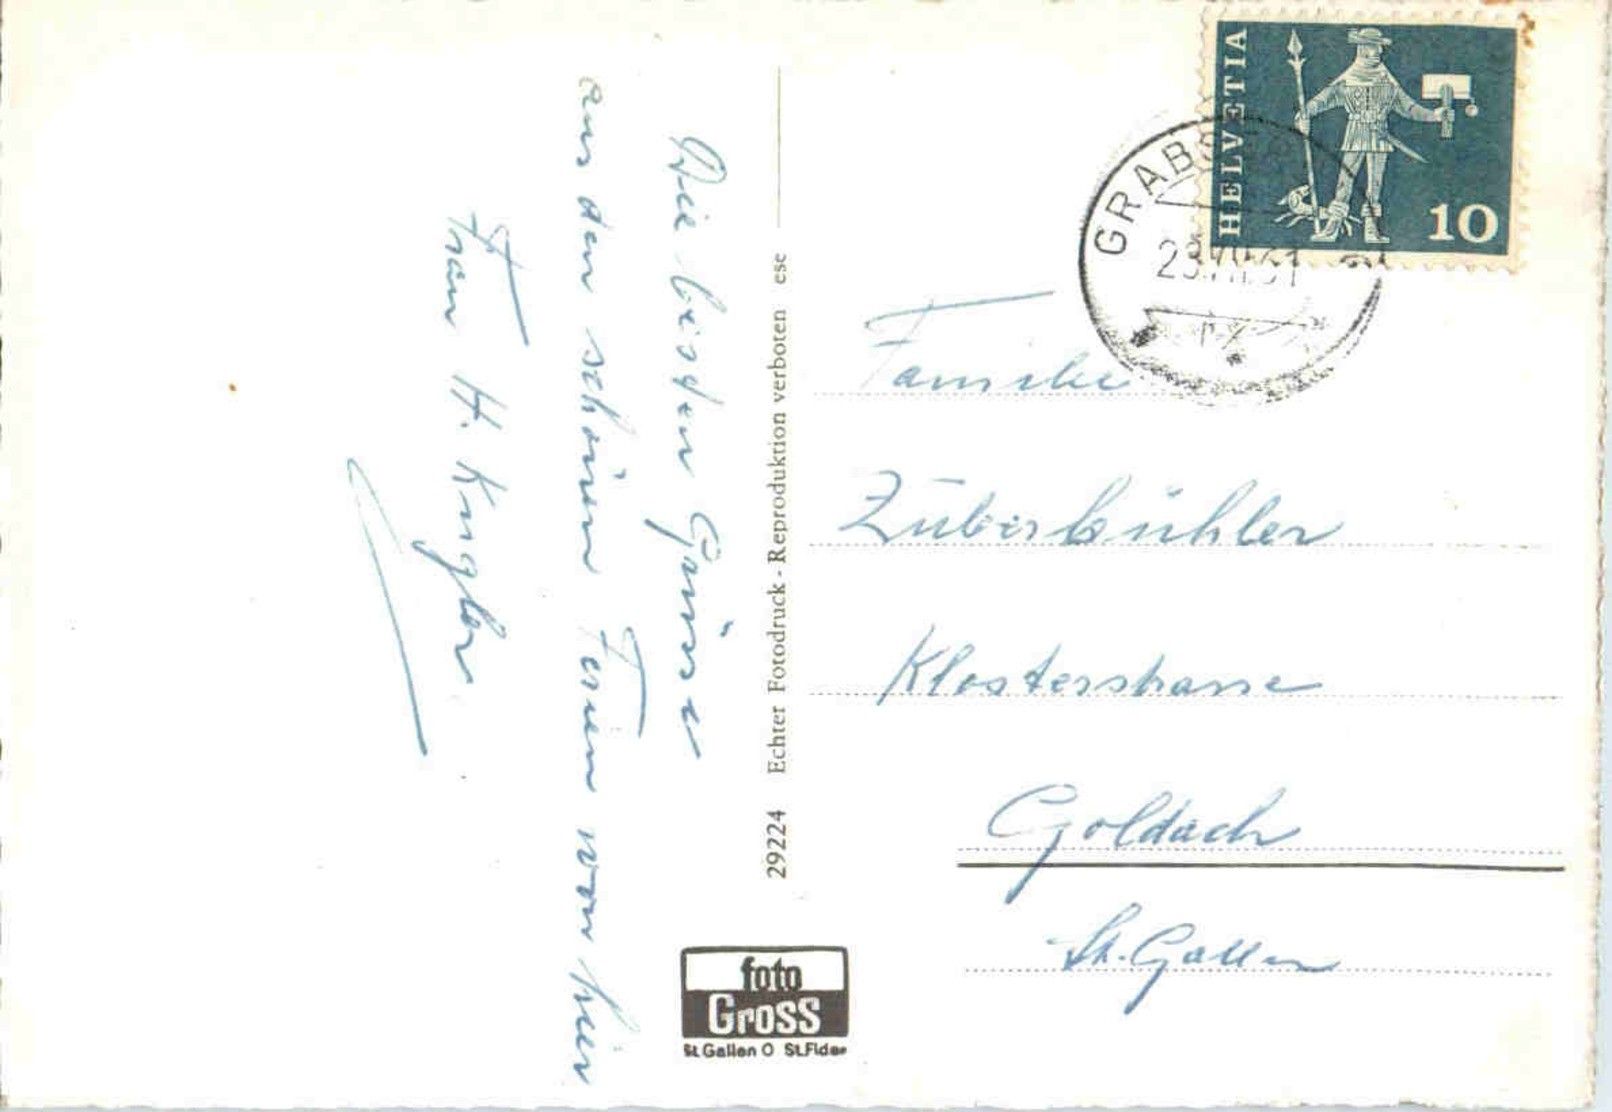 Die besten Grüsse
aus den schönen Ferien von hier
Frau H. Kugler
29224 Echter Fotodruck - Reproduktion verboten ese
foto
Gross
St.Gallen O St.Fiden
HELVETIA
10
GRABS
Familie
Zuberbühler
Klosterstrasse
Goldach
St. Gallen